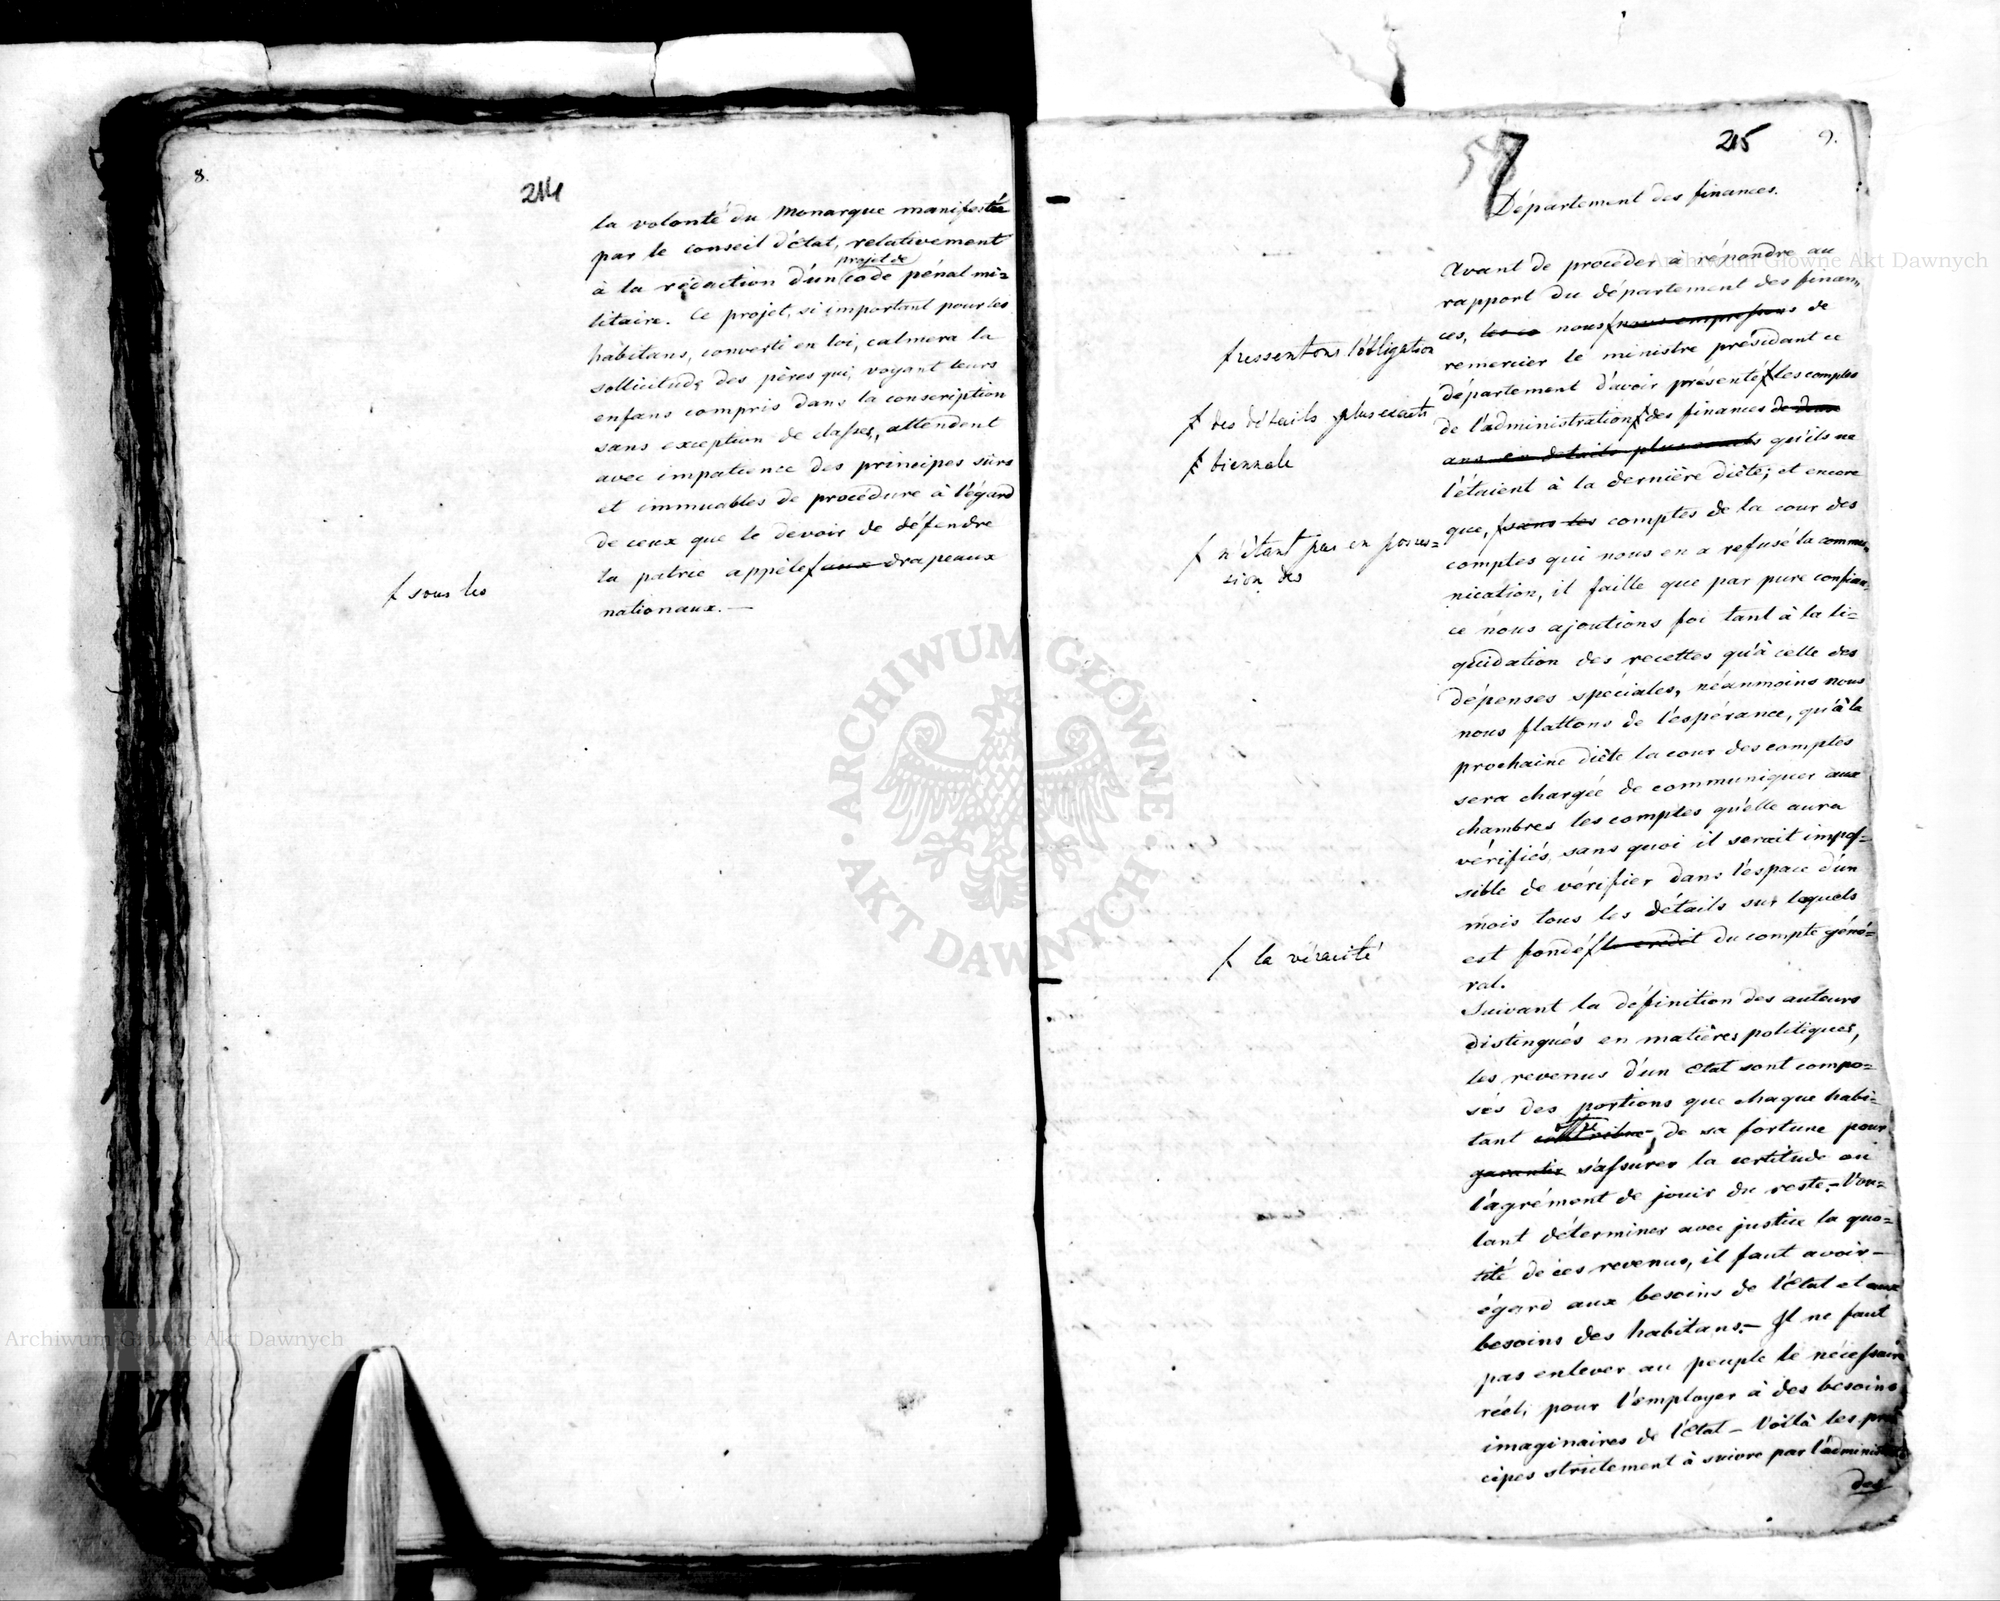 8.
214
la volonté du Monarque manifestée
par le conseil d'État, relativement
projet de
à la rédaction d'un code pénal mi=
litaire. Ce projet, si important pour les
habitans, converti en loi, calmera la
sollicitude des pères qui, voyant leurs
enfans compris dans la conscription
sans exception de classes, attendent
avec impatience des principes sûrs
et immuables de procédure à l'égard
de ceux que le devoir de défendre
la patrie appèle aux drapeaux
sous les
nationaux.—
57
215
9.
Département des finances.
Avant de procéder à répondre au
rapport du département des finan=
ces, nous nous empressons de
ressentons l'obligation
remercier le ministre présidant ce
département d'avoir présenté les comptes
des détails plus exacts
de l'administration des finances de deux
biennale
ans en détails plus exacts qu'ils ne
l'étaient à la dernière diète; et encore
que, sans les comptes de la cour des
n'étant pas en posses=
sion des
comptes qui nous en a refusé la commu=
nication, il faille que par pure confian=
ce nous ajoutions foi tant à la li=
quidation des recettes qu'à celle des
dépenses spéciales, néanmoins nous
nous flattons de l'espérance, qu'à la
prochaine diète la cour des comptes
sera chargée de communiquer aux
chambres les comptes qu'elle aura
vérifiés, sans quoi il serait impos=
sible de vérifier dans l'espace d'un
mois tous les détails sur lequels
est fondé le crédit du compte géné=
la véracité
ral.
Suivant la définition des auteurs
distingués en matières politiques,
les revenus d'un Etat sont compo=
sés des portions que chaque habi=
tant contribue, de sa fortune pour
garantir s'assurer la certitude ou
l'agrément de jouir du reste.— Vou=
lant déterminer avec justice la quo=
tité de ces revenus, il faut avoir—
égard aux besoins de l'Etat et aux
besoins des habitans.— Il ne faut
pas enlever au peuple le nécessaire
réel, pour l'employer à des besoins
imaginaires de l'Etat — Voilà les prin
cipes strictement à suivre par l'administ
des
Archiwum Główne Akt Dawnych
Archiwum Główne Akt Dawnych
ARCHIWUM GŁÓWNE
AKT DAWNYCH